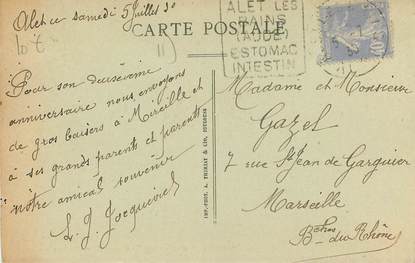 Alet ce samedi 5 Juillet 30
CARTE POSTALE
ALET LES
BAINS
(AUDE)
ESTOMAC
INTESTIN
40c
Pour son deuxième
anniversaire nous envoyons
de gros baisers à Mireille et
à ses grands parents et parents
notre amical souvenir
L. J. Jacquevriel
IMP. PHOT. A. THIRIAT & CIE, TOULOUSE
Madame et Monsieur
Gazel
7 rue St Jean de Garguier
Marseille
Bches du Rhône